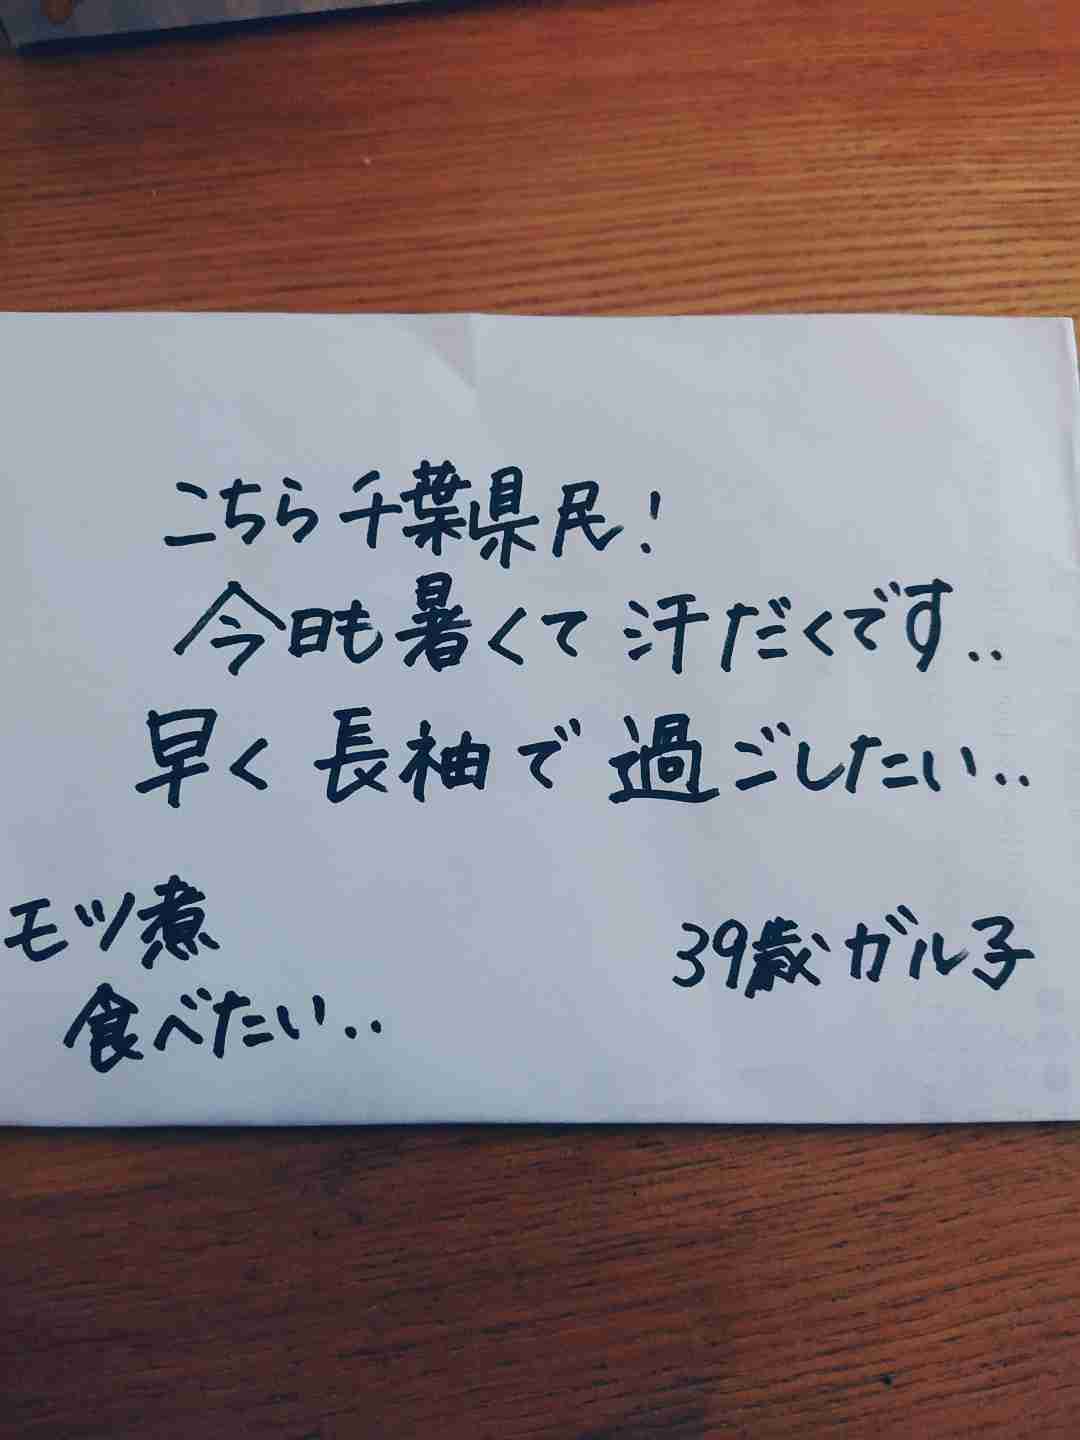 こちら千葉県民!
今日も暑くて汗だくです..
早く長袖で過ごしたい..
モツ煮
食べたい..
39歳ガル子